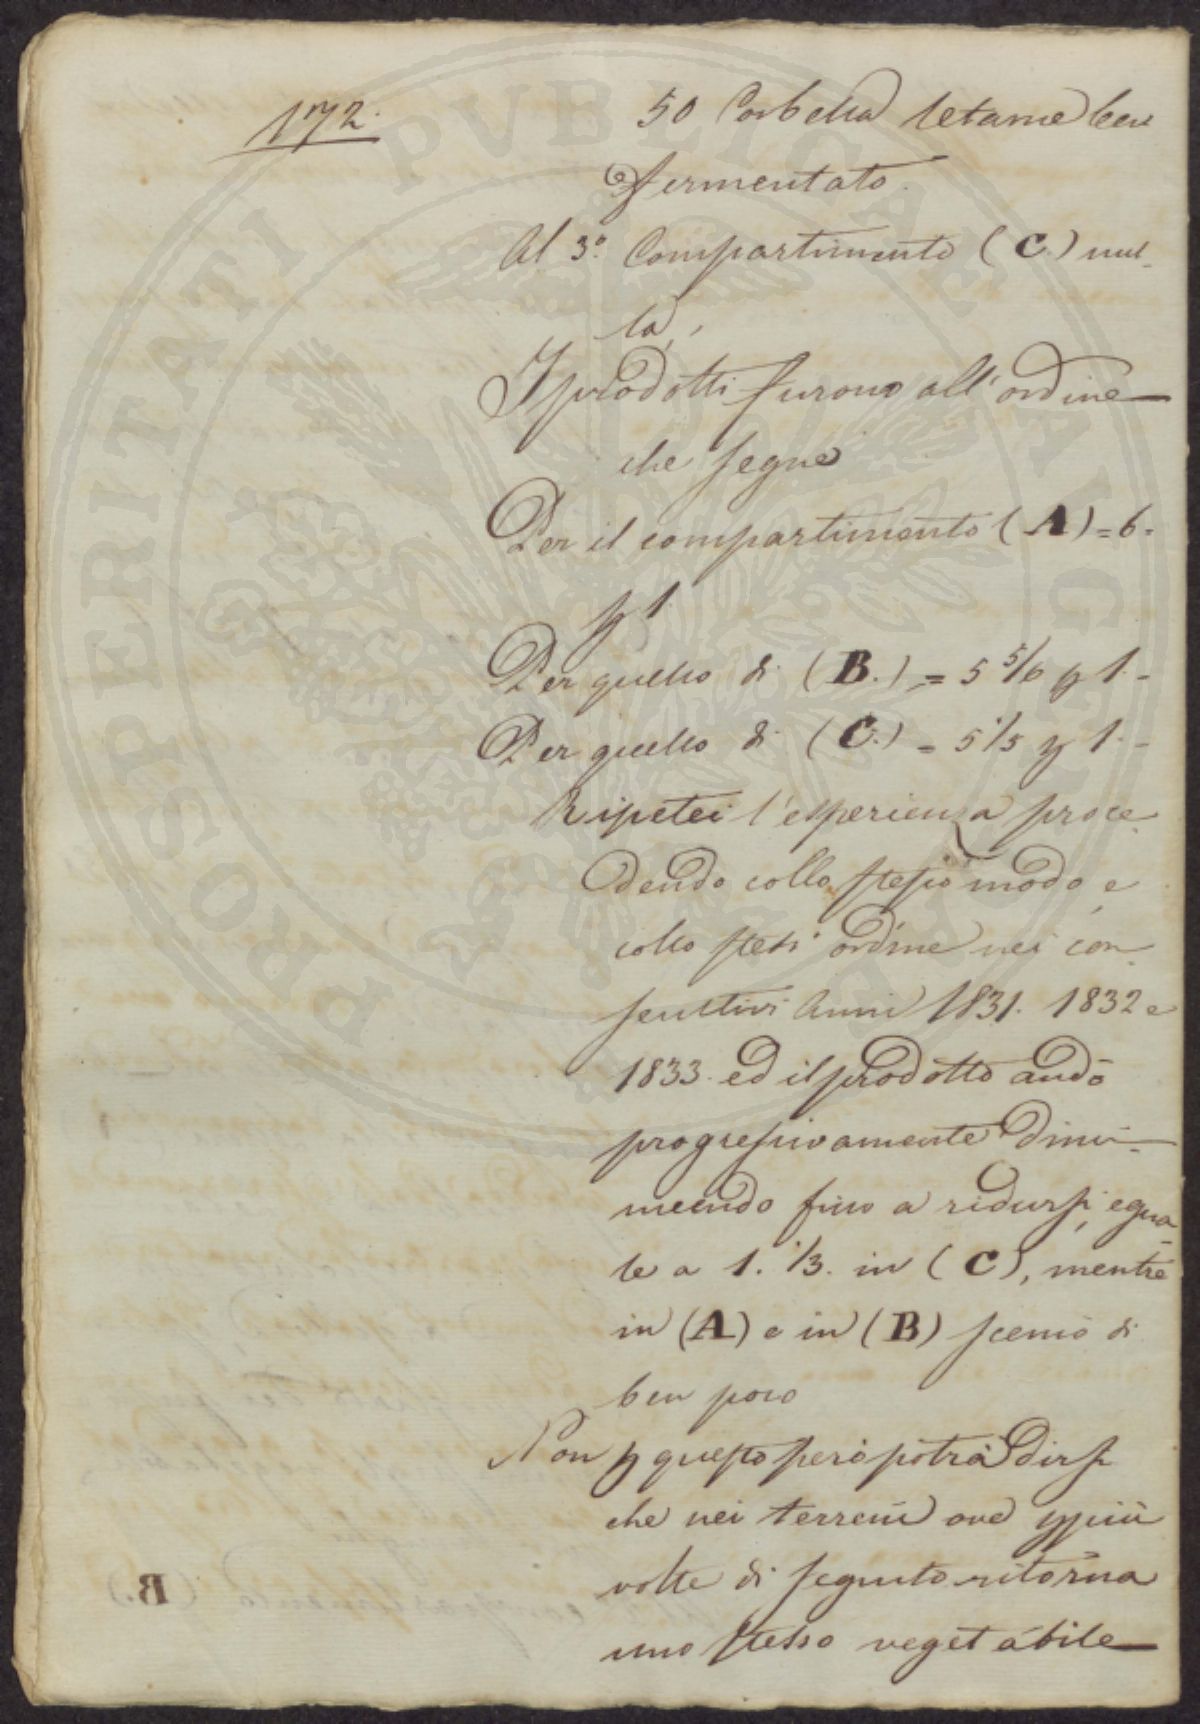 172.
50 Corbella letame ben
fermentato.
Al 3.º Compartimento (C.) nul-
la,
I prodotti furono all'ordine
che segue
Per il compartimento (A) = 6.
p 1.
Per quello di (B.) = 5 5/6 p 1.-
Per quello di (C.) = 5 1/5 p 1.-
Ripetei l'esperienza proce-
dendo collo stesso modo, e
collo stess' ordine nei con-
secuttivi anni 1831. 1832 e
1833. ed il prodotto andò
progressivamente dimi-
nuendo fino a ridursi, egua-
le a 1. 1/3. in (C), mentre
in (A) e in (B) scemò di
ben poco
Non p questo però potrà dirsi
che nei terreni ove p più
volte di seguito ritorna
uno stesso vegetabile
PVBLICAE
PROSPERITATI
(B.)